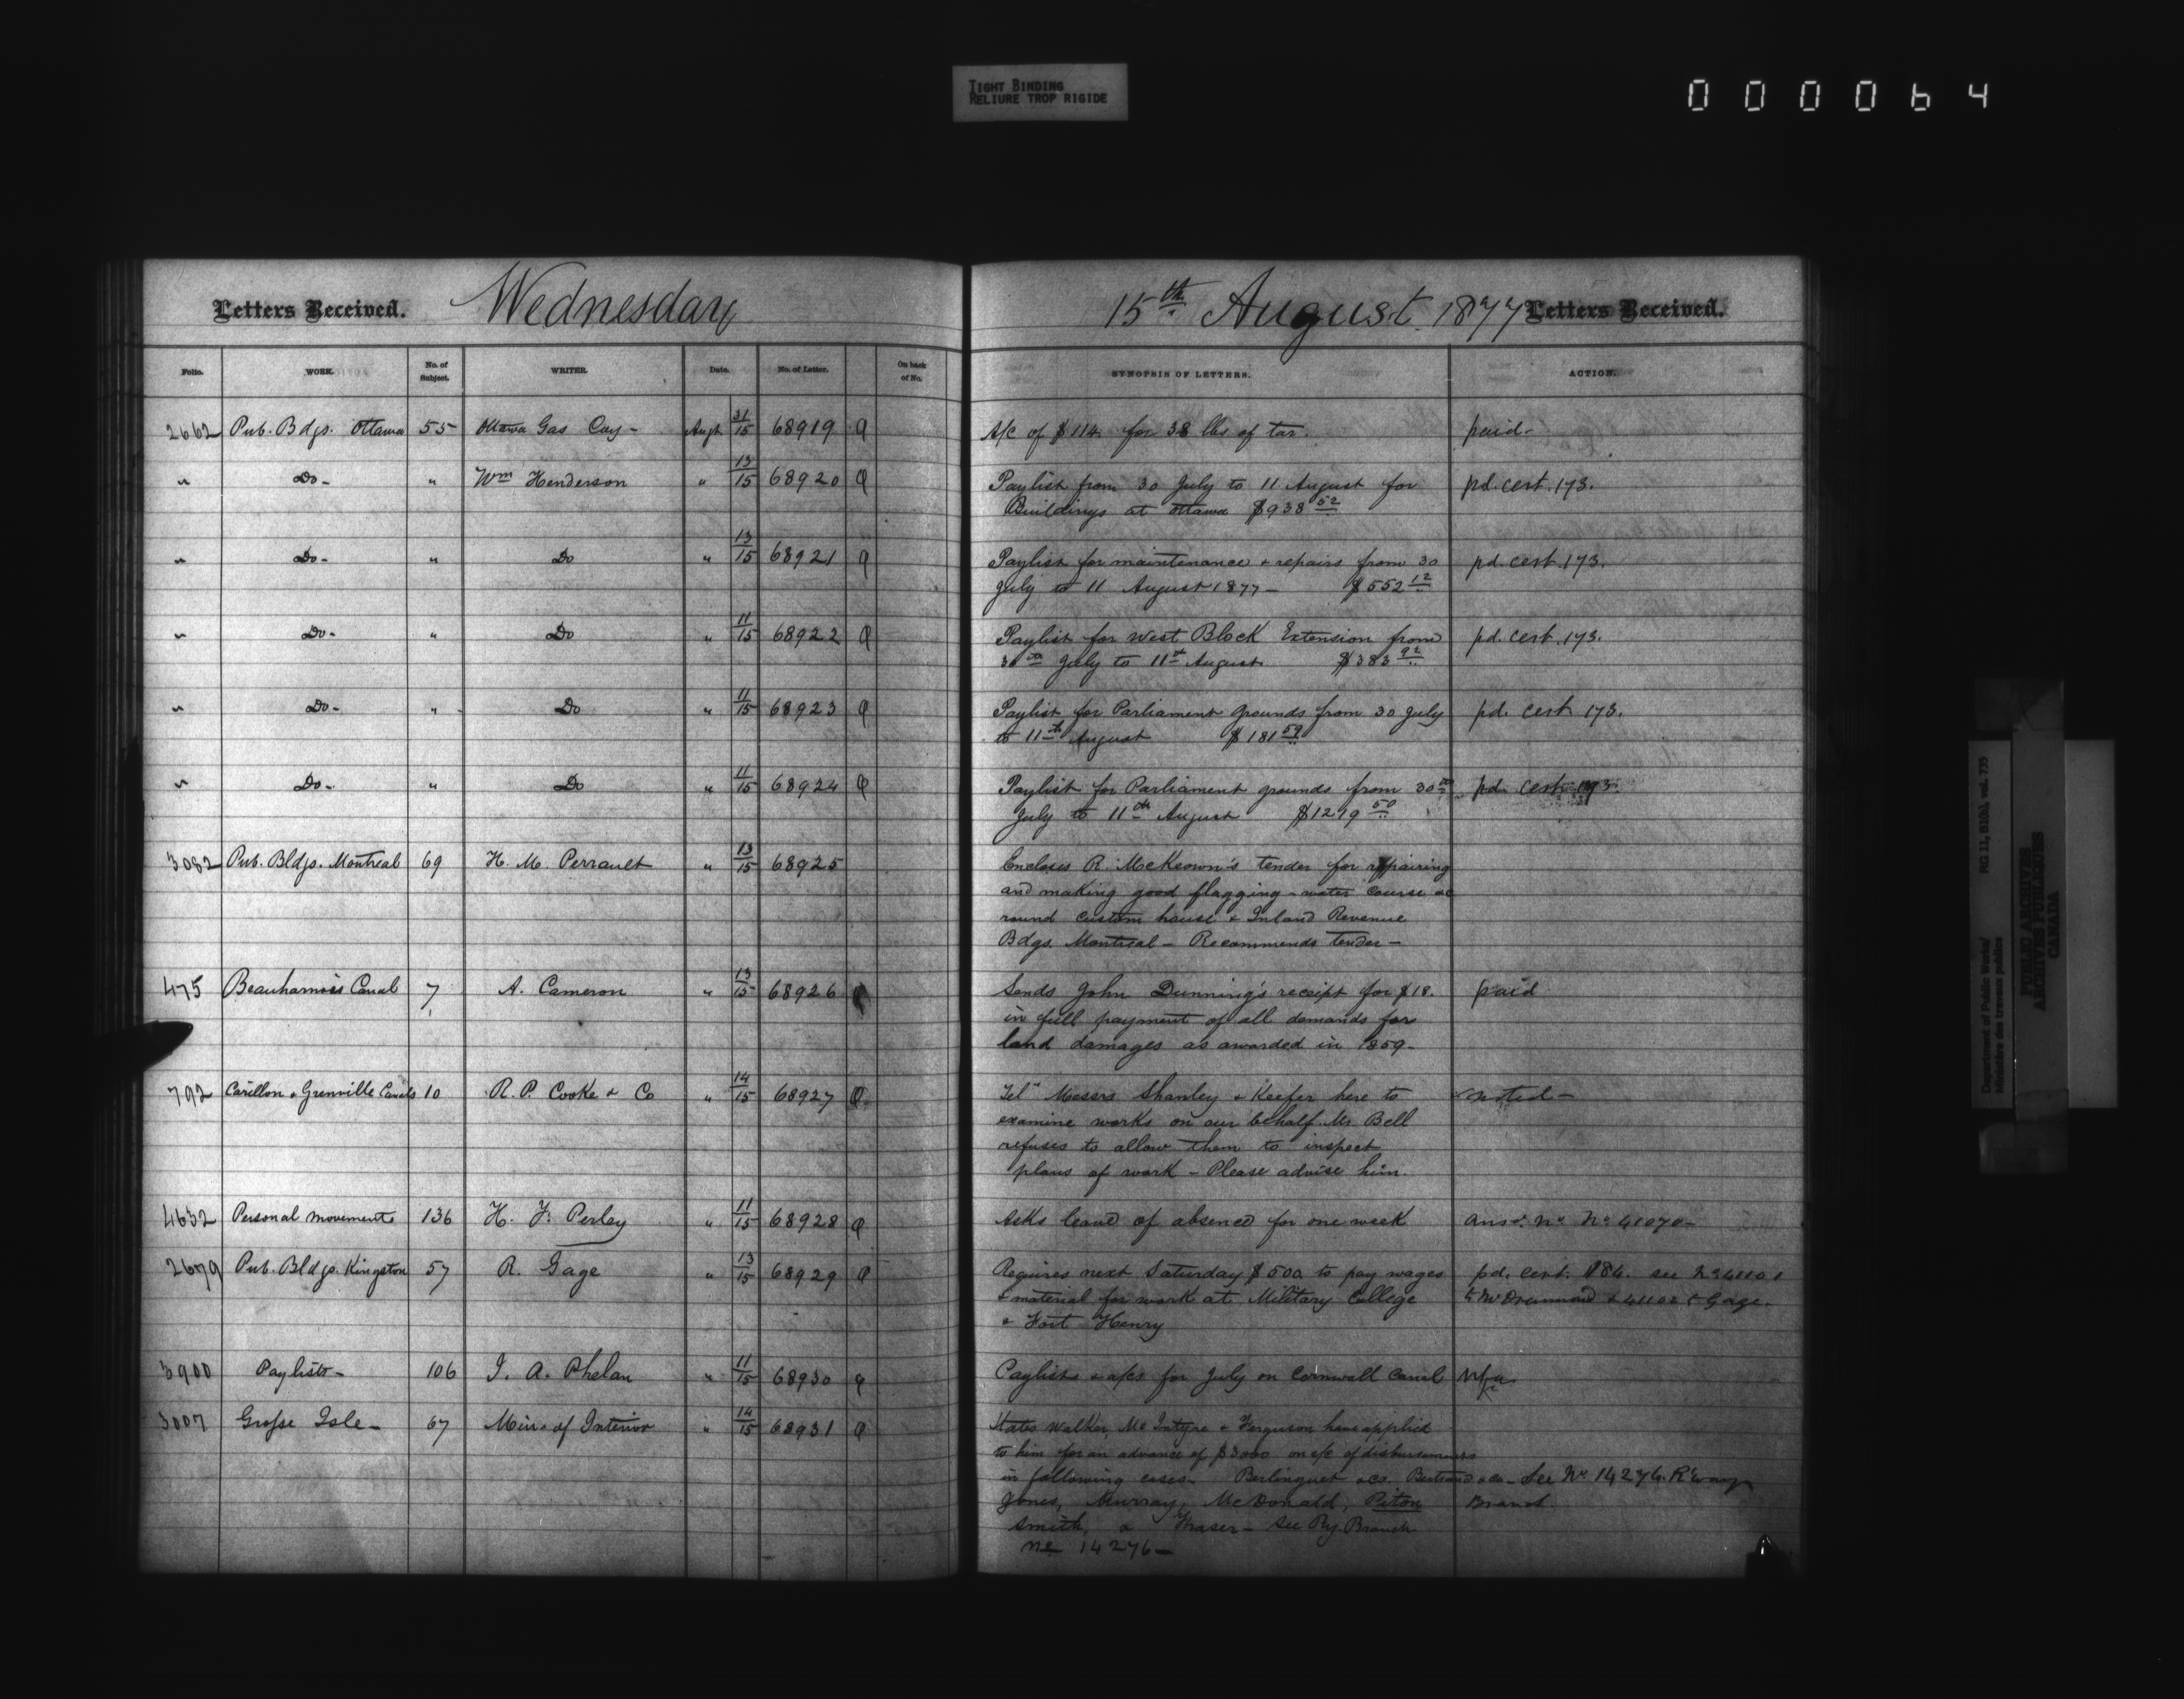 TIGHT BINDING
RELIURE TROP RIGIDE
000064
Letters Received. Wednesday 15th August 1877 Letters Received.
Folio. WORK. No. of Subject. WRITER. Date. No. of Letter. On back of No. SYNOPSIS OF LETTERS. ACTION.
2662 Pub. Bdgs. Ottawa 55 Ottawa Gas Coy - Augt 31/15 68919 A/c of $114. for 38 lbs of tar. paid -
" Do - " Wm Henderson " 13/15 68920 Paylist from 30 July to 11 August for pd. cert. 173.
Buildings at Ottawa $938 52
" Do - " Do " 13/15 68921 Paylist for maintenance & repairs from 30 pd. cert. 173.
July to 11 August 1877 - $552 12
" Do - " Do " 11/15 68922 Paylist for West Block Extension from pd. cert. 173.
30th July to 11th August $383 92
" Do - " Do " 11/15 68923 Paylist for Parliament grounds from 30 July pd. cert 173.
to 11th August $181 59
" Do - " Do " 11/15 68924 Paylist for Parliament grounds from 30th pd. cert 173.
July to 11th August $1219 50
3082 Pub. Bldgs. Montreal 69 H. M. Perrault " 13/15 68925 Encloses R. McKeown's tender for repairing
and making good flagging - water course &c
round custom house & Inland Revenue
Bdgs. Montreal - Recommends tender -
475 Beauharnois Canal 7 A. Cameron " 13/15 68926 Sends John Dunning's receipt for $18. paid
in full payment of all demands for
land damages as awarded in 1859 -
792 Carillon & Grenville Canals 10 R. P. Cooke & Co " 14/15 68927 Tel" Messrs Shanley & Keefer here to noted -
examine works on our behalf. Mr Bell
refuses to allow them to inspect
plans of work - Please advise him.
4632 Personal movements 136 H. F. Perley " 11/15 68928 Asks leave of absence for one week ansd. No 41070 -
2679 Pub. Bldgs. Kingston 57 R. Gage " 13/15 68929 Requires next Saturday $500 to pay wages pd. cert. 184. see No 41101
& material for work at Military College to Mr Drummond & 41102 to Gage.
& Fort Henry
3900 Paylists - 106 I. A. Phelan " 11/15 68930 Paylists & a/cs for July on Cornwall Canal
3007 Grosse Isle - 67 Minr of Interior " 14/15 68931 States Walker, McIntyre & Ferguson have applied
to him for an advance of $3000 on a/c of disbursements
in following cases - Berlinguet & co. Bertrand & co - See No 14276. R'way
Jones, Murray, McDonald, Piton Branch.
Smith, & Fraser - See Ry. Branch
No 14276 -
Department of Public Works/
Ministère des travaux publics
RG 11, B1(b), vol. 733
PUBLIC ARCHIVES
ARCHIVES PUBLIQUES
CANADA